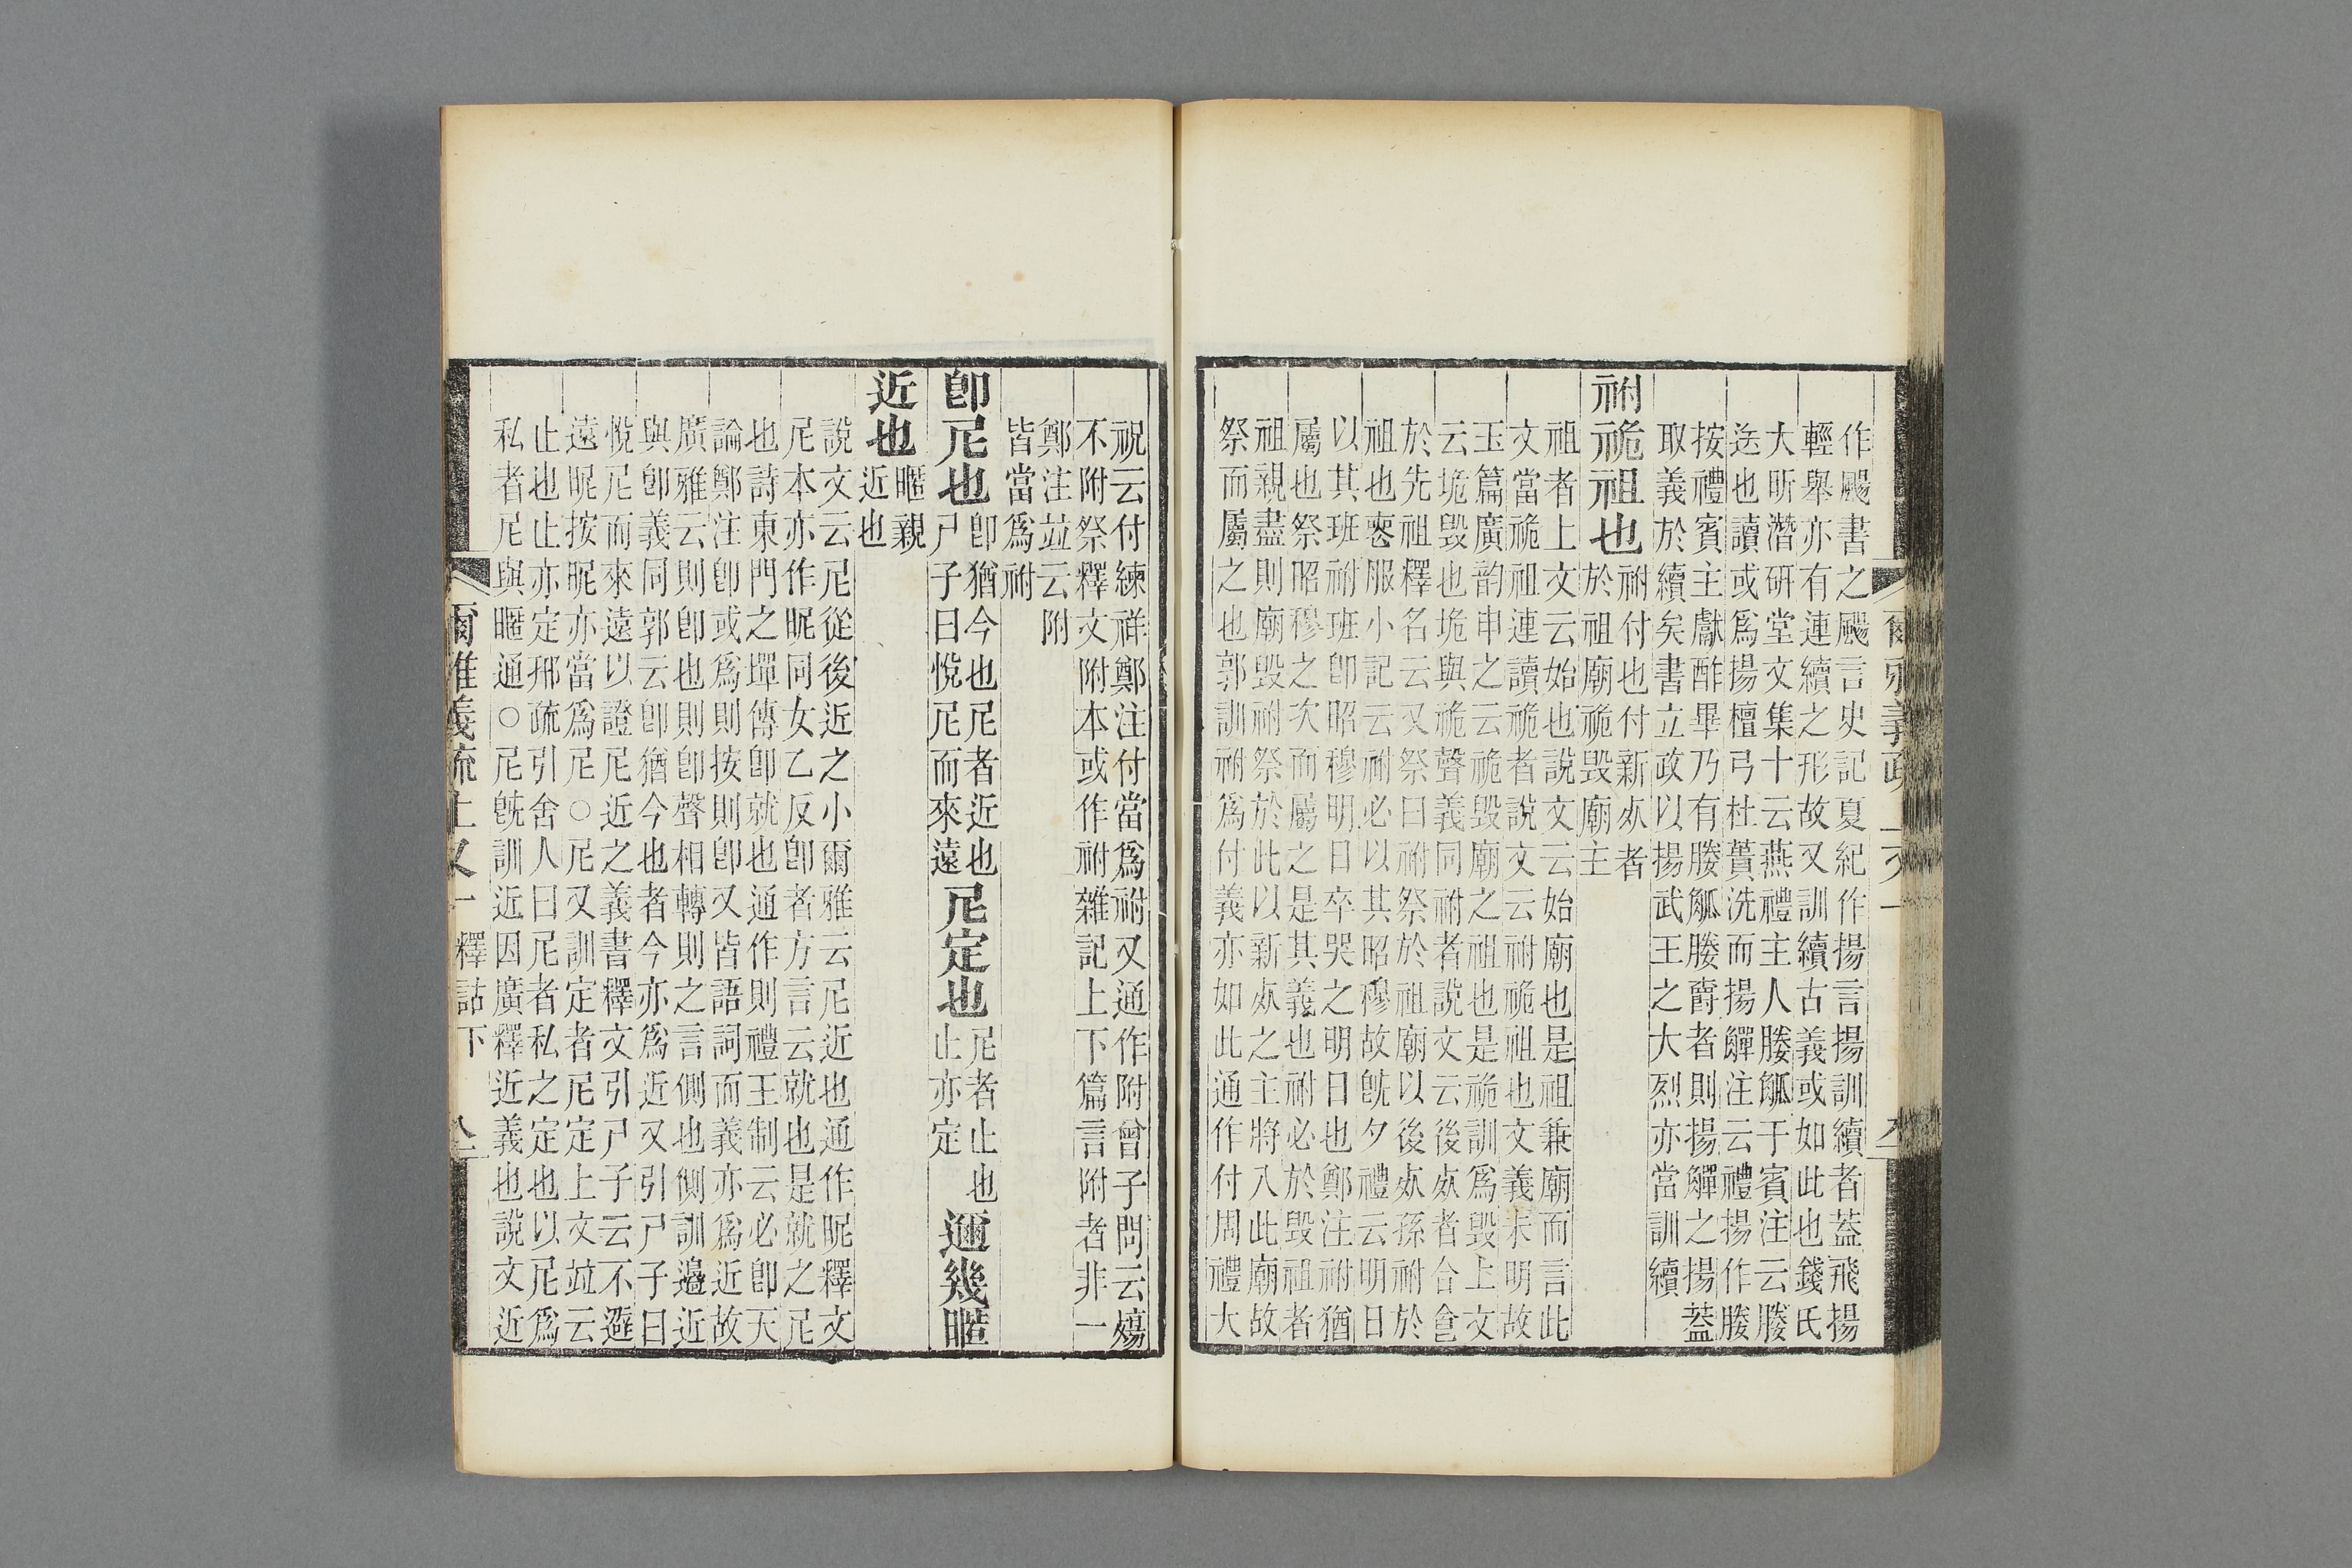 作颺書之颺言史記夏紀作揚言揚訓續者蓋飛揚
輕舉亦有連續之形故又訓續古義或如此也錢氏
大昕潛研堂文集十云燕禮主人媵觚于賓注云媵
送也讀或爲揚檀弓杜蕢洗而揚觶注云禮揚作媵
按禮賓主獻酢畢乃有媵觚媵爵者則揚觶之揚蓋
取義於續矣書立政以揚武王之大烈亦當訓續
祔祪祖也
祔付也付新𣦸者
於祖廟祪毀廟主
祖者上文云始也說文云始廟也是祖兼廟而言此
文當祪祖連讀祪者說文云祔祪祖也文義未明故
玉篇廣韵申之云祪毀廟之祖也是祪訓爲毀上文
云垝毀也垝與祪聲義同祔者說文云後𣦸者合食
於先祖釋名云又祭曰祔祭於祖廟以後𣦸孫祔於
祖也喪服小記云祔必以其昭穆故旣夕禮云明日
以其班祔班卽昭穆明日卒哭之明日也鄭注祔猶
屬也祭昭穆之次而屬之是其義也祔必於毀祖者
祖親盡則廟毀祔祭於此以新𣦸之主將入此廟故
祭而屬之也郭訓祔爲付義亦如此通作付周禮大
祝云付練祥鄭注付當爲祔又通作附曾子問云殤
不附祭釋文附本或作祔雜記上下篇言附者非一
鄭注竝云附
皆當爲祔
卽尼也
卽猶今也尼者近也
尸子曰悅尼而來遠
尼定也
尼者止也
止亦定
邇幾暱
近也
暱親
近也
說文云尼從後近之小爾雅云尼近也通作昵釋文
尼本亦作昵同女乙反卽者方言云就也是就之尼
也詩東門之墠傳卽就也通作則禮王制云必卽天
論鄭注卽或爲則按則卽又皆語詞而義亦爲近故
廣雅云則卽也則卽聲相轉則之言側也側訓邊近
與卽義同郭云卽猶今也者今亦爲近又引尸子曰
悅尼而來遠以證尼近之義書釋文引尸子云不避
遠昵按昵亦當爲尼○尼又訓定者尼定上文竝云
止也止亦定邢疏引舍人曰尼者私之定也以尼爲
私者尼與暱通○尼旣訓近因廣釋近義也說文近
爾雅義疏上又一 釋詁下